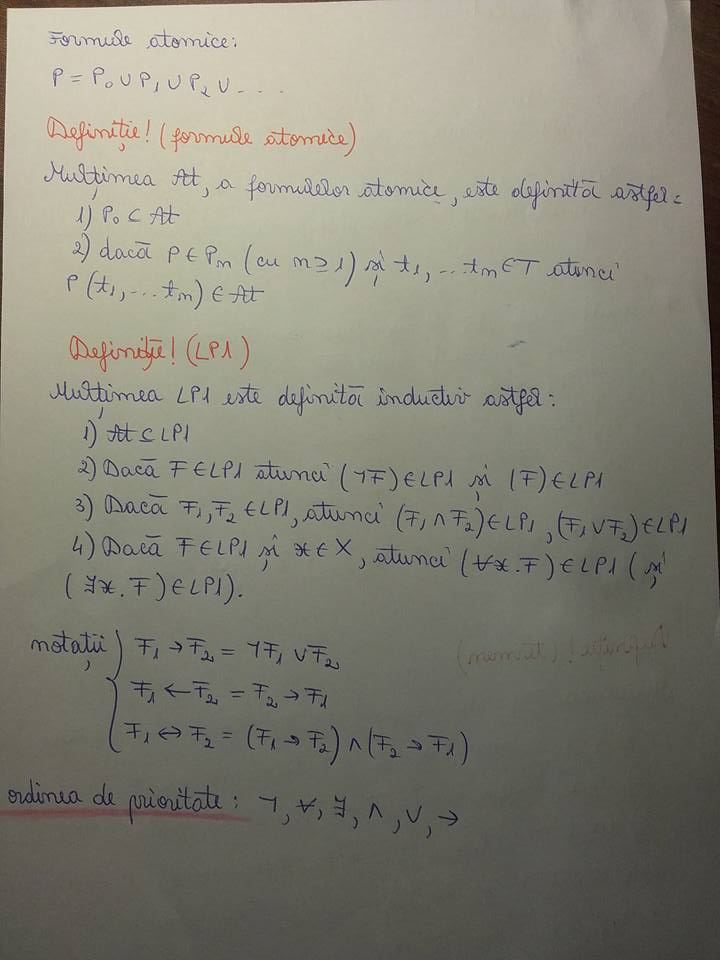 Formule atomice:
P = P₀ ∪ P₁ ∪ P₂ ∪ ...
Definiție! (formule atomice)
Mulțimea At, a formulelor atomice, este definită astfel:
1) P₀ ⊂ At
2) dacă P ∈ Pₙ (cu n ≥ 1) și t₁, ... tₙ ∈ T atunci
P (t₁, ... tₙ) ∈ At
Definiție! (LP1)
Mulțimea LP1 este definită inductiv astfel:
1) At ⊆ LP1
2) Dacă F ∈ LP1 atunci (¬F) ∈ LP1 și (F) ∈ LP1
3) Dacă F₁, F₂ ∈ LP1, atunci (F₁ ∧ F₂) ∈ LP1, (F₁ ∨ F₂) ∈ LP1
4) Dacă F ∈ LP1 și x ∈ X, atunci (∀x. F) ∈ LP1 (și
(∃x. F) ∈ LP1).
notații } F₁ → F₂ = ¬F₁ ∨ F₂
F₁ ← F₂ = F₂ → F₁
F₁ ↔ F₂ = (F₁ → F₂) ∧ (F₂ → F₁)
ordinea de prioritate: ¬, ∀, ∃, ∧, ∨, →